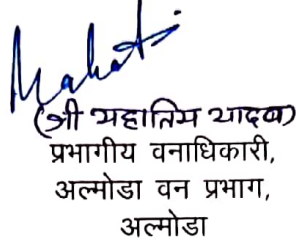 (श्री महातिम यादव)
प्रभागीय वनाधिकारी,
अल्मोडा वन प्रभाग,
अल्मोडा